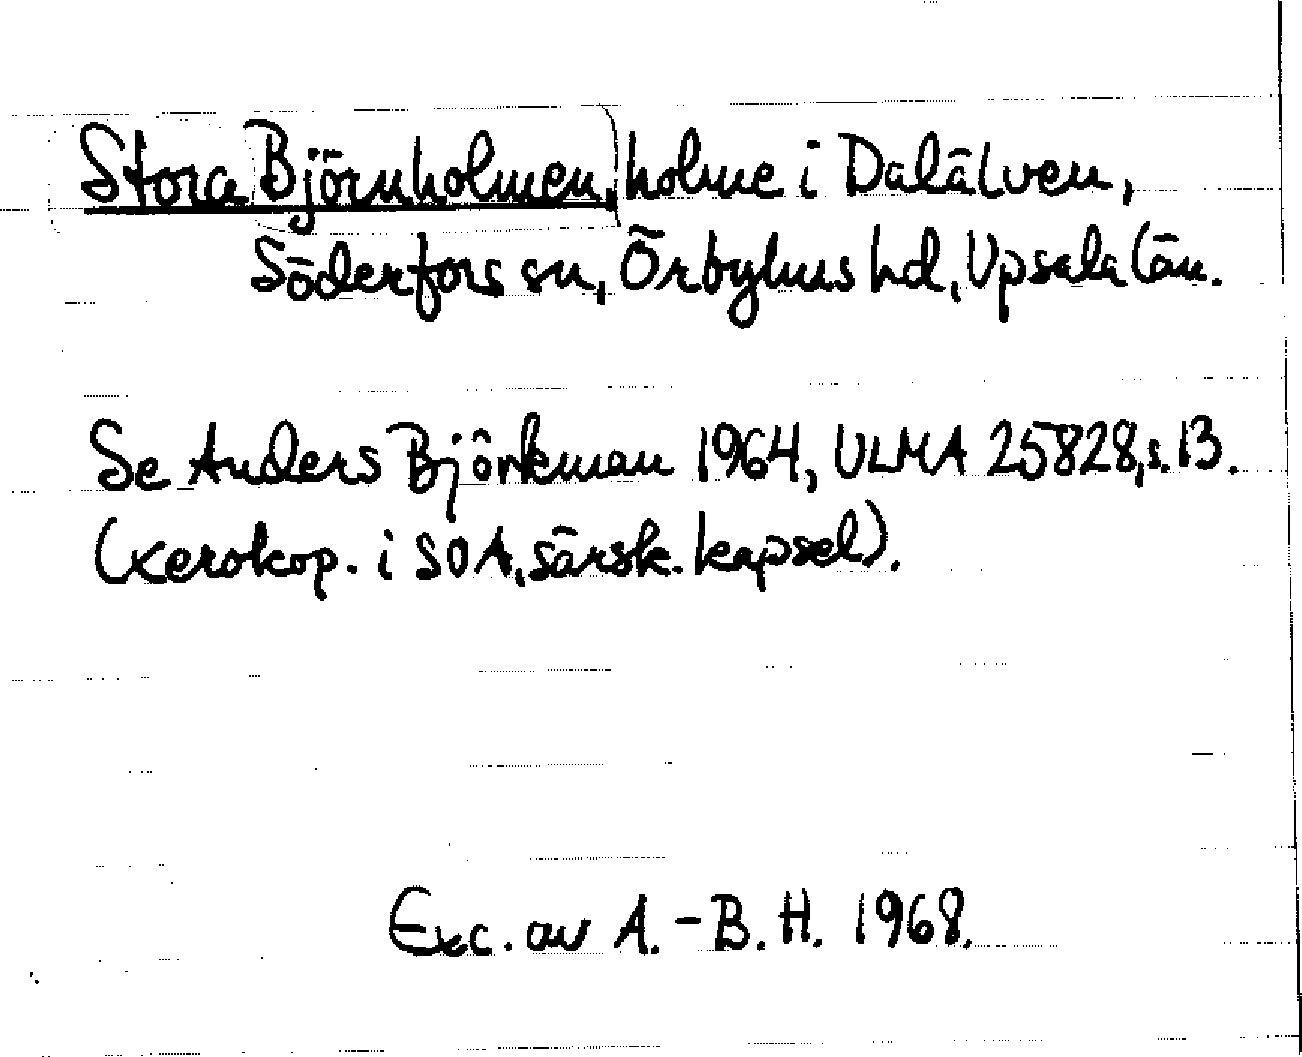 Stora Björnholmen, holme i Dalälven,
Söderfors sn, Örbyhus hd, Upsala län.
Se Anders Björkman 1964, ULMA 25828, s. 13.
(xerokop. i SOA, särsk. kapsel).
Exc. av A.-B. H. 1968.